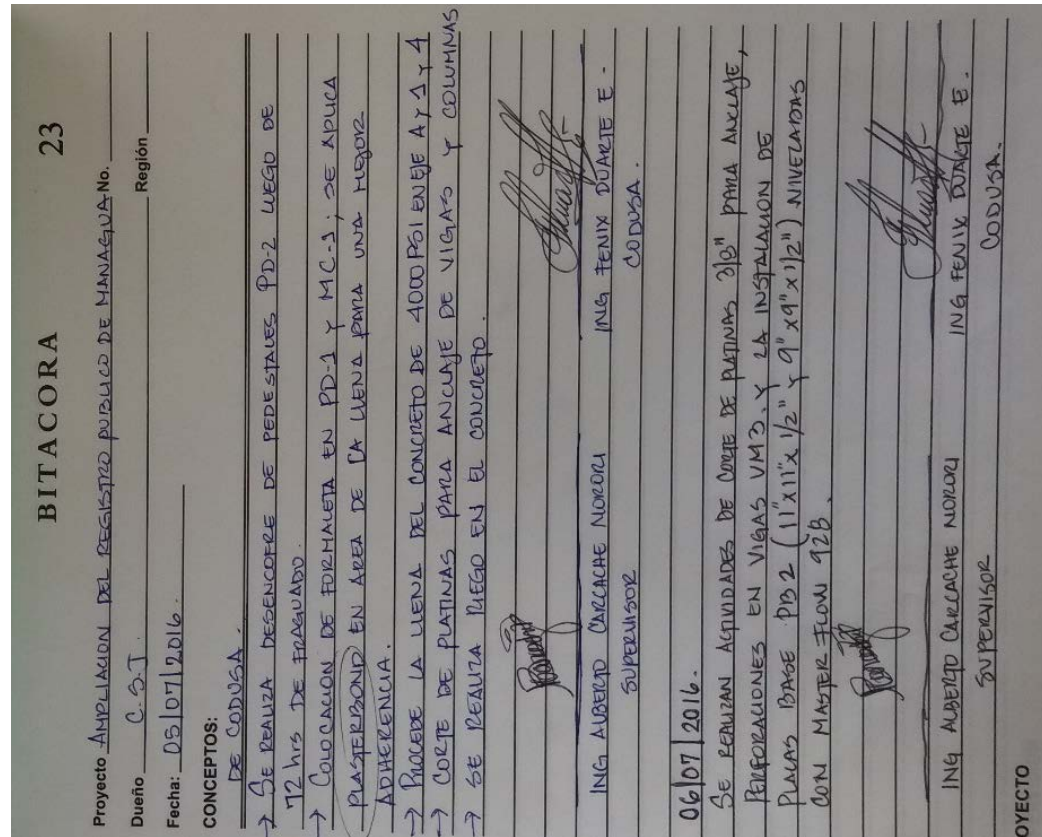 BITACORA 23
Proyecto AMPLIACION DEL REGISTRO PUBLICO DE MANAGUA No.
Dueño C.S.J. Región
Fecha: 05/07/2016.
CONCEPTOS:
DE CODUSA.
→ SE REALIZA DESENCOFRE DE PEDESTALES PD-2 LUEGO DE
72 hrs DE FRAGUADO.
→ COLOCACION DE FORMALETA EN PD-1 Y MC-1; SE APLICA
PLASTERBOND EN AREA DE LA LLENA PARA UNA MEJOR
ADHERENCIA.
→ PROCEDE LA LLENA DEL CONCRETO DE 4000 PSI EN EJE A y 1 y 4
→ CORTE DE PLATINAS PARA ANCLAJE DE VIGAS Y COLUMNAS
→ SE REALIZA RIEGO EN EL CONCRETO.
ING ALBERTO CARCACHE NORORI ING FENIX DUARTE E.
SUPERVISOR CODUSA.
06/07/2016.
SE REALIZAN ACTIVIDADES DE CORTE DE PLATINAS 3/8" PARA ANCLAJE,
PERFORACIONES EN VIGAS VM3. Y LA INSTALACION DE
PLACAS BASE PB2 (11"x11"x 1/2" y 9"x9"x1/2") NIVELADAS
CON MASTER FLOW 928.
ING ALBERTO CARCACHE NORORI ING FENIX DUARTE E.
SUPERVISOR CODUSA.
OYECTO